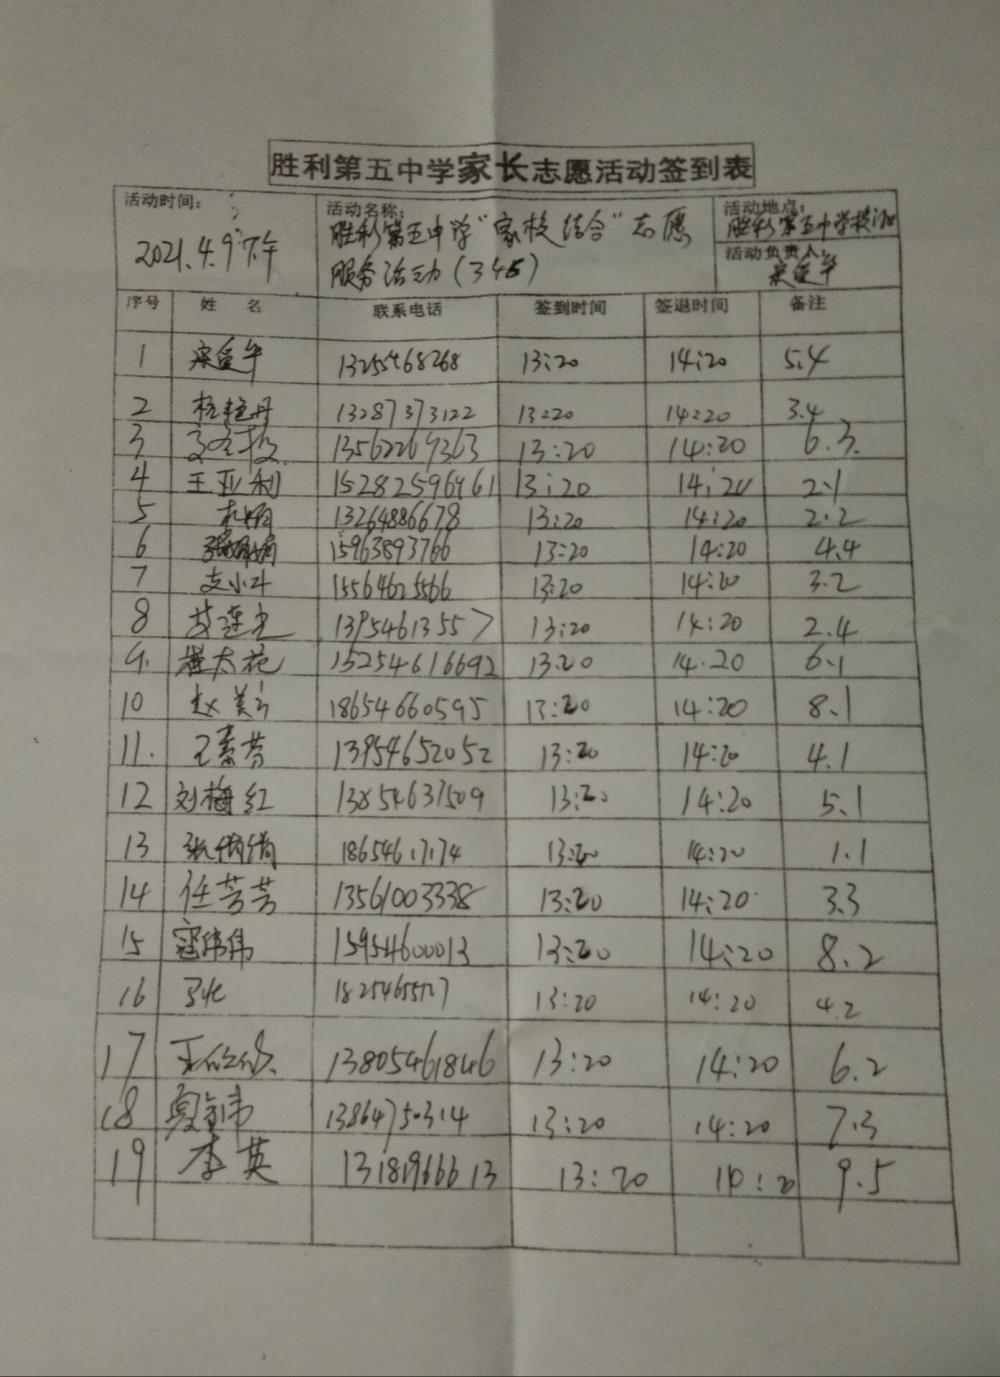 胜利第五中学家长志愿活动签到表
活动时间: 2021.4.9下午
活动名称: 胜利第五中学"家校结合"志愿服务活动(345)
活动地点: 胜利第五中学校门口
活动负责人:
序号 姓名 联系电话 签到时间 签退时间 备注
1 13255468268 13:20 14:20 5.4
2 13287373122 13:20 14:20 3.4
3 13562269363 13:20 14:20 6.3
4 王亚利 15282596961 13:20 14:20 2.1
5 13264886678 13:20 14:20 2.2
6 15963893766 13:20 14:20 4.4
7 支小斗 15564625566 13:20 14:20 3.2
8 13954613557 13:20 14:20 2.4
9. 崔大花 15254616692 13:20 14:20 6.1
10 赵美 18654660595 13:20 14:20 8.1
11. 王素芳 13954652052 13:20 14:20 4.1
12 刘梅红 13854637509 13:20 14:20 5.1
13 张倩倩 13:20 14:20 1.1
14 任芳芳 13561003338 13:20 14:20 3.3
15 寇伟伟 15954600013 13:20 14:20 8.2
16 13:20 14:20 4.2
17 13805461846 13:20 14:20 6.2
18 13:20 14:20 7.3
19 李英 13181966613 13:20 14:20 9.5